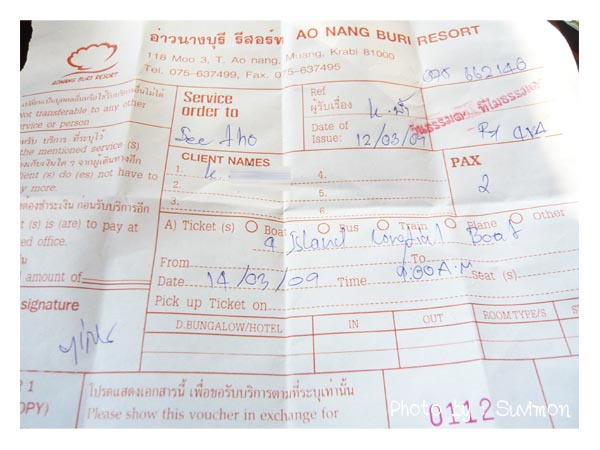 อ่าวนางบุรี รีสอร์ท AO NANG BURI RESORT
118 Moo 3, T. Ao nang, Muang, Krabi 81000
Tel. 075-637499, Fax. 075-637495
AONANG BURI RESORT
not transferable to any other
service or person
the mentioned service (S)
(s) do (es) not have to
more.
t (s) is (are) to pay at
ed office.
amount of
signature
Service
order to
See tho
Ref
ผู้รับเรื่อง
Date of
Issue: 12/03/09
662140
CLIENT NAMES
1. K.
2.
3.
4.
5.
6.
PAX
2
A) Ticket (s) Boat Bus Train Plane Other
9 Island Longtail Boat
From To
Date 14/03/09 Time 9:00 A.M Seat (s)
Pick up Ticket on
D.BUNGALOW/HOTEL IN OUT ROOM TYPE/S
โปรดแสดงเอกสารนี้ เพื่อขอรับบริการตามที่ระบุเท่านั้น
Please show this voucher in exchange for
OPY)
0112
Photo by : Suvimon